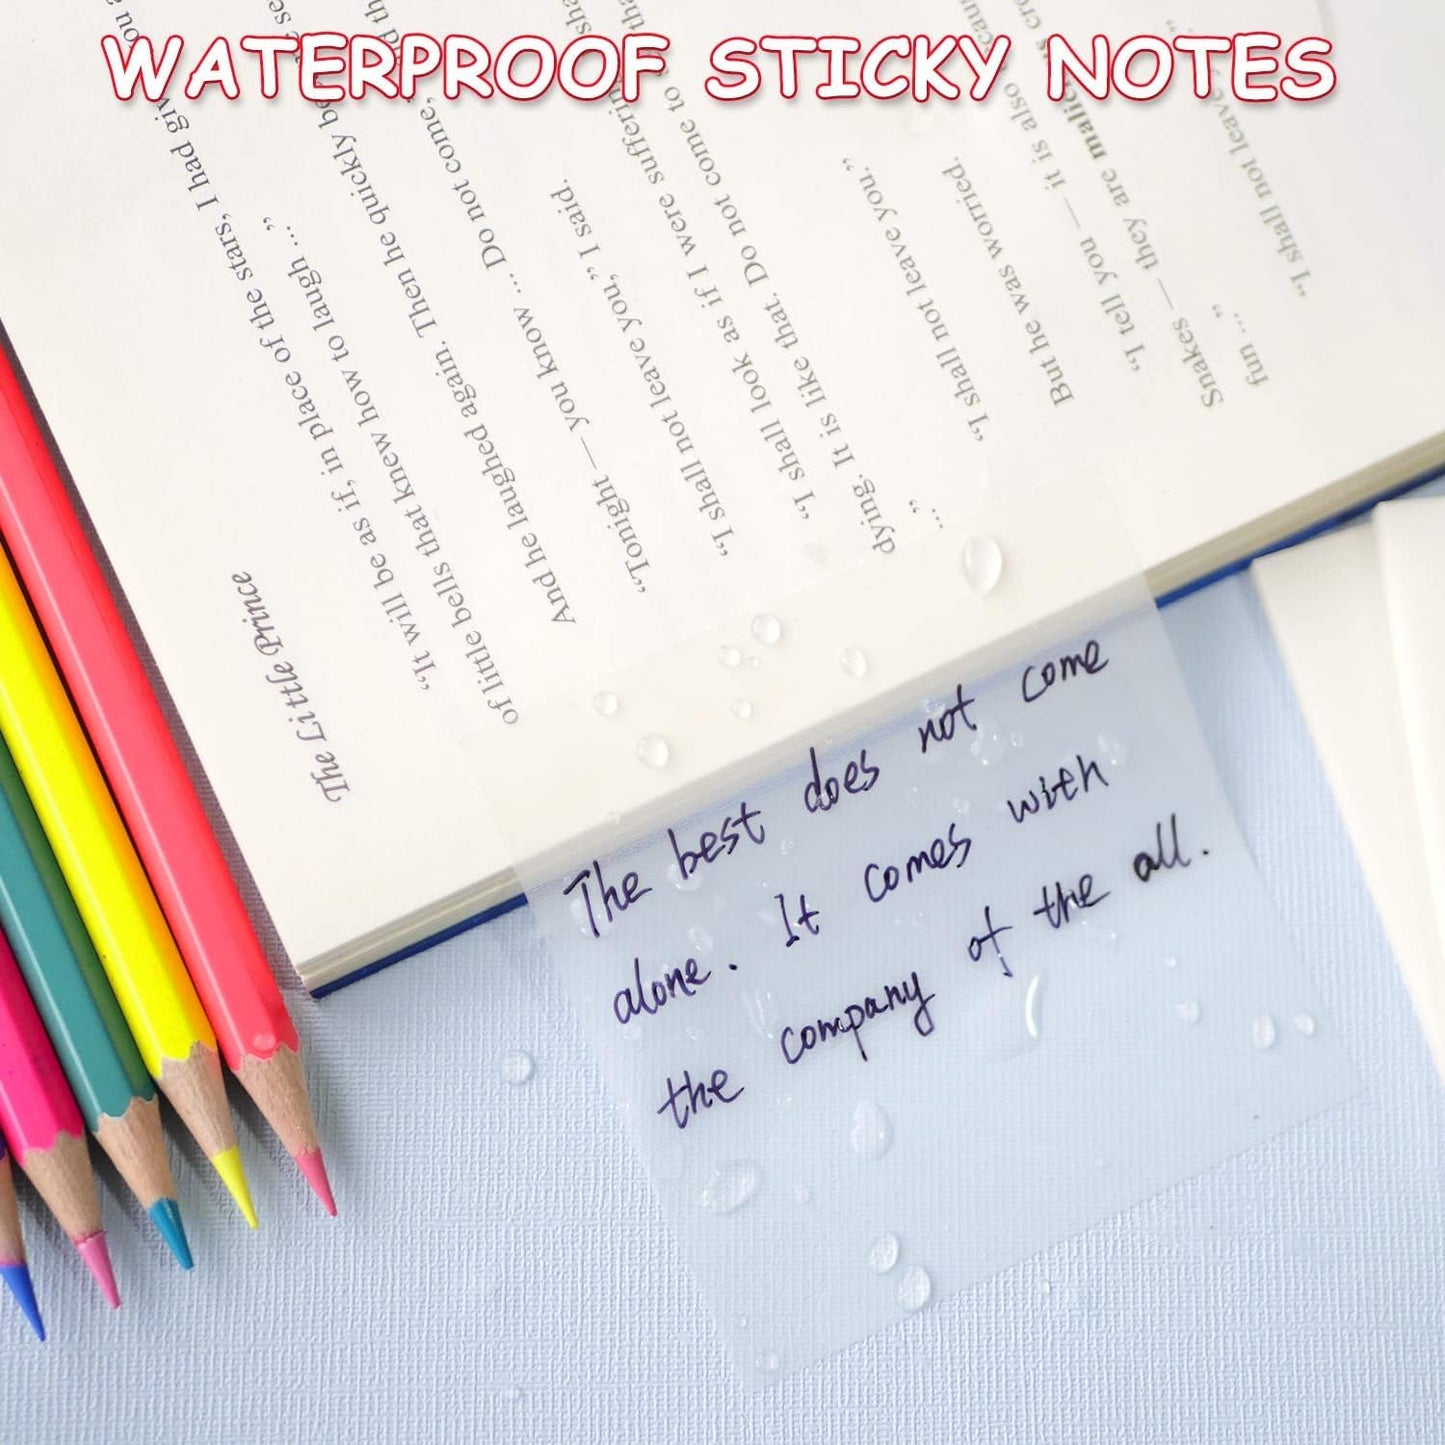 WATERPROOF STICKY NOTES
The Little Prince
“It will be as if, in place of the stars, I had you a
of little bells that knew how to laugh …”
And he laughed again. Then he quickly
“Tonight — you know … Do not come,
“I shall not leave you,” I said.
“I shall look as if I were suffering
dying. It is like that. Do not come to
…”
“I shall not leave you.”
But he was worried.
“I tell you — it is also
Snakes — they are
fun …”
“I shall not leave
The best does not come
alone. It comes with
the company of the all.